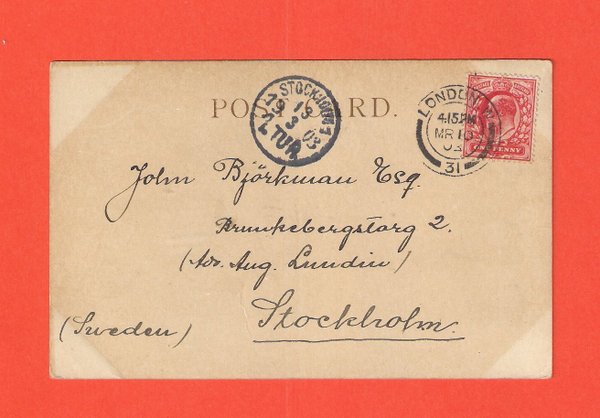 POST CARD.
STOCKHOLM 1
19 3 03
2 TUR
LONDON.W
4.15 PM
MR 16
03
31
ONE PENNY
John Björkman Esq.
Brunkebergstorg 2.
(Adr. Aug. Lundin)
Stockholm.
(Sweden)